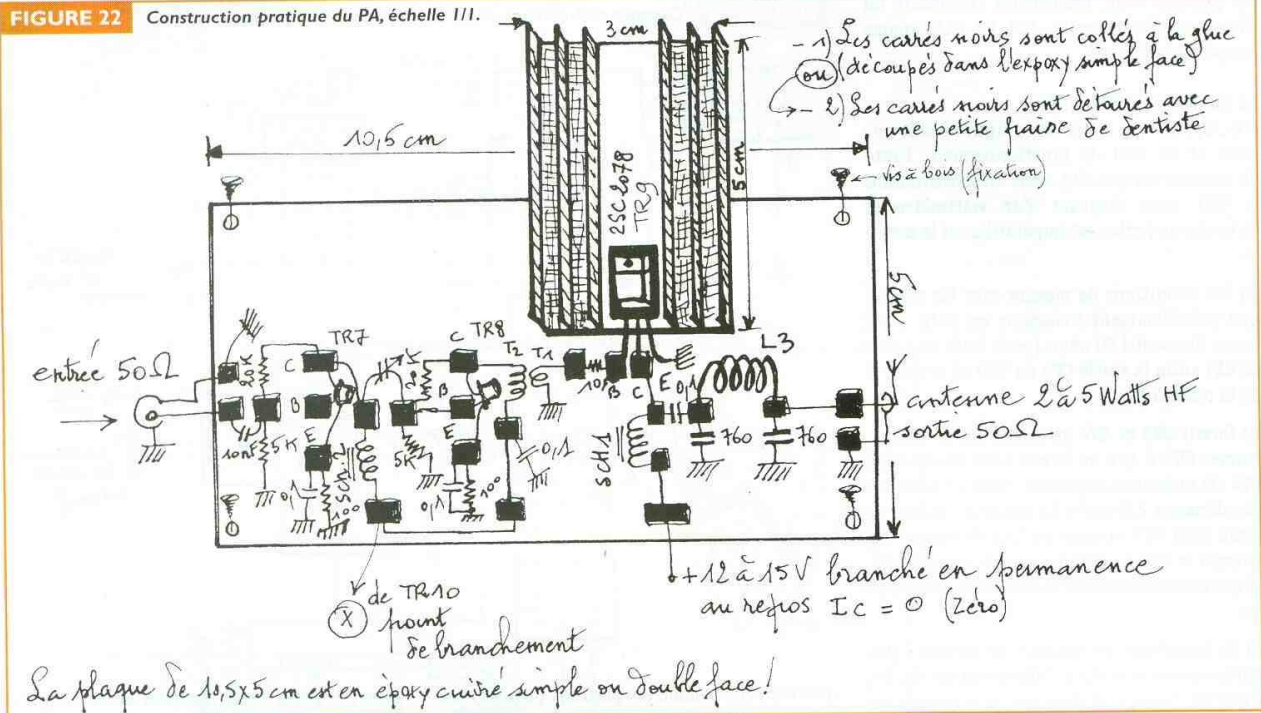 FIGURE 22 Construction pratique du PA, échelle 1/1.
3 cm
- 1) Les carrés noirs sont collés à la glue
ou (découpés dans l'expoxy simple face)
- 2) Les carrés noirs sont détourés avec
une petite fraise de dentiste
10,5 cm
5 cm
vis à bois (fixation)
2SC2078
TR9
5 cm
entrée 50Ω
TR7
TR8
C
B
E
C
B
E
T2
T1
B
C
E
0,1
L3
10nF
5K
0,1
100
SCH1
5K
0,1
100
0,1
SCH1
760
760
antenne 2 à 5 Watts HF
sortie 50Ω
+12 à 15V branché en permanence
au repos Ic = 0 (Zéro)
de TR10
X point
de branchement
La plaque de 10,5x5 cm est en époxy cuivré simple ou double face!